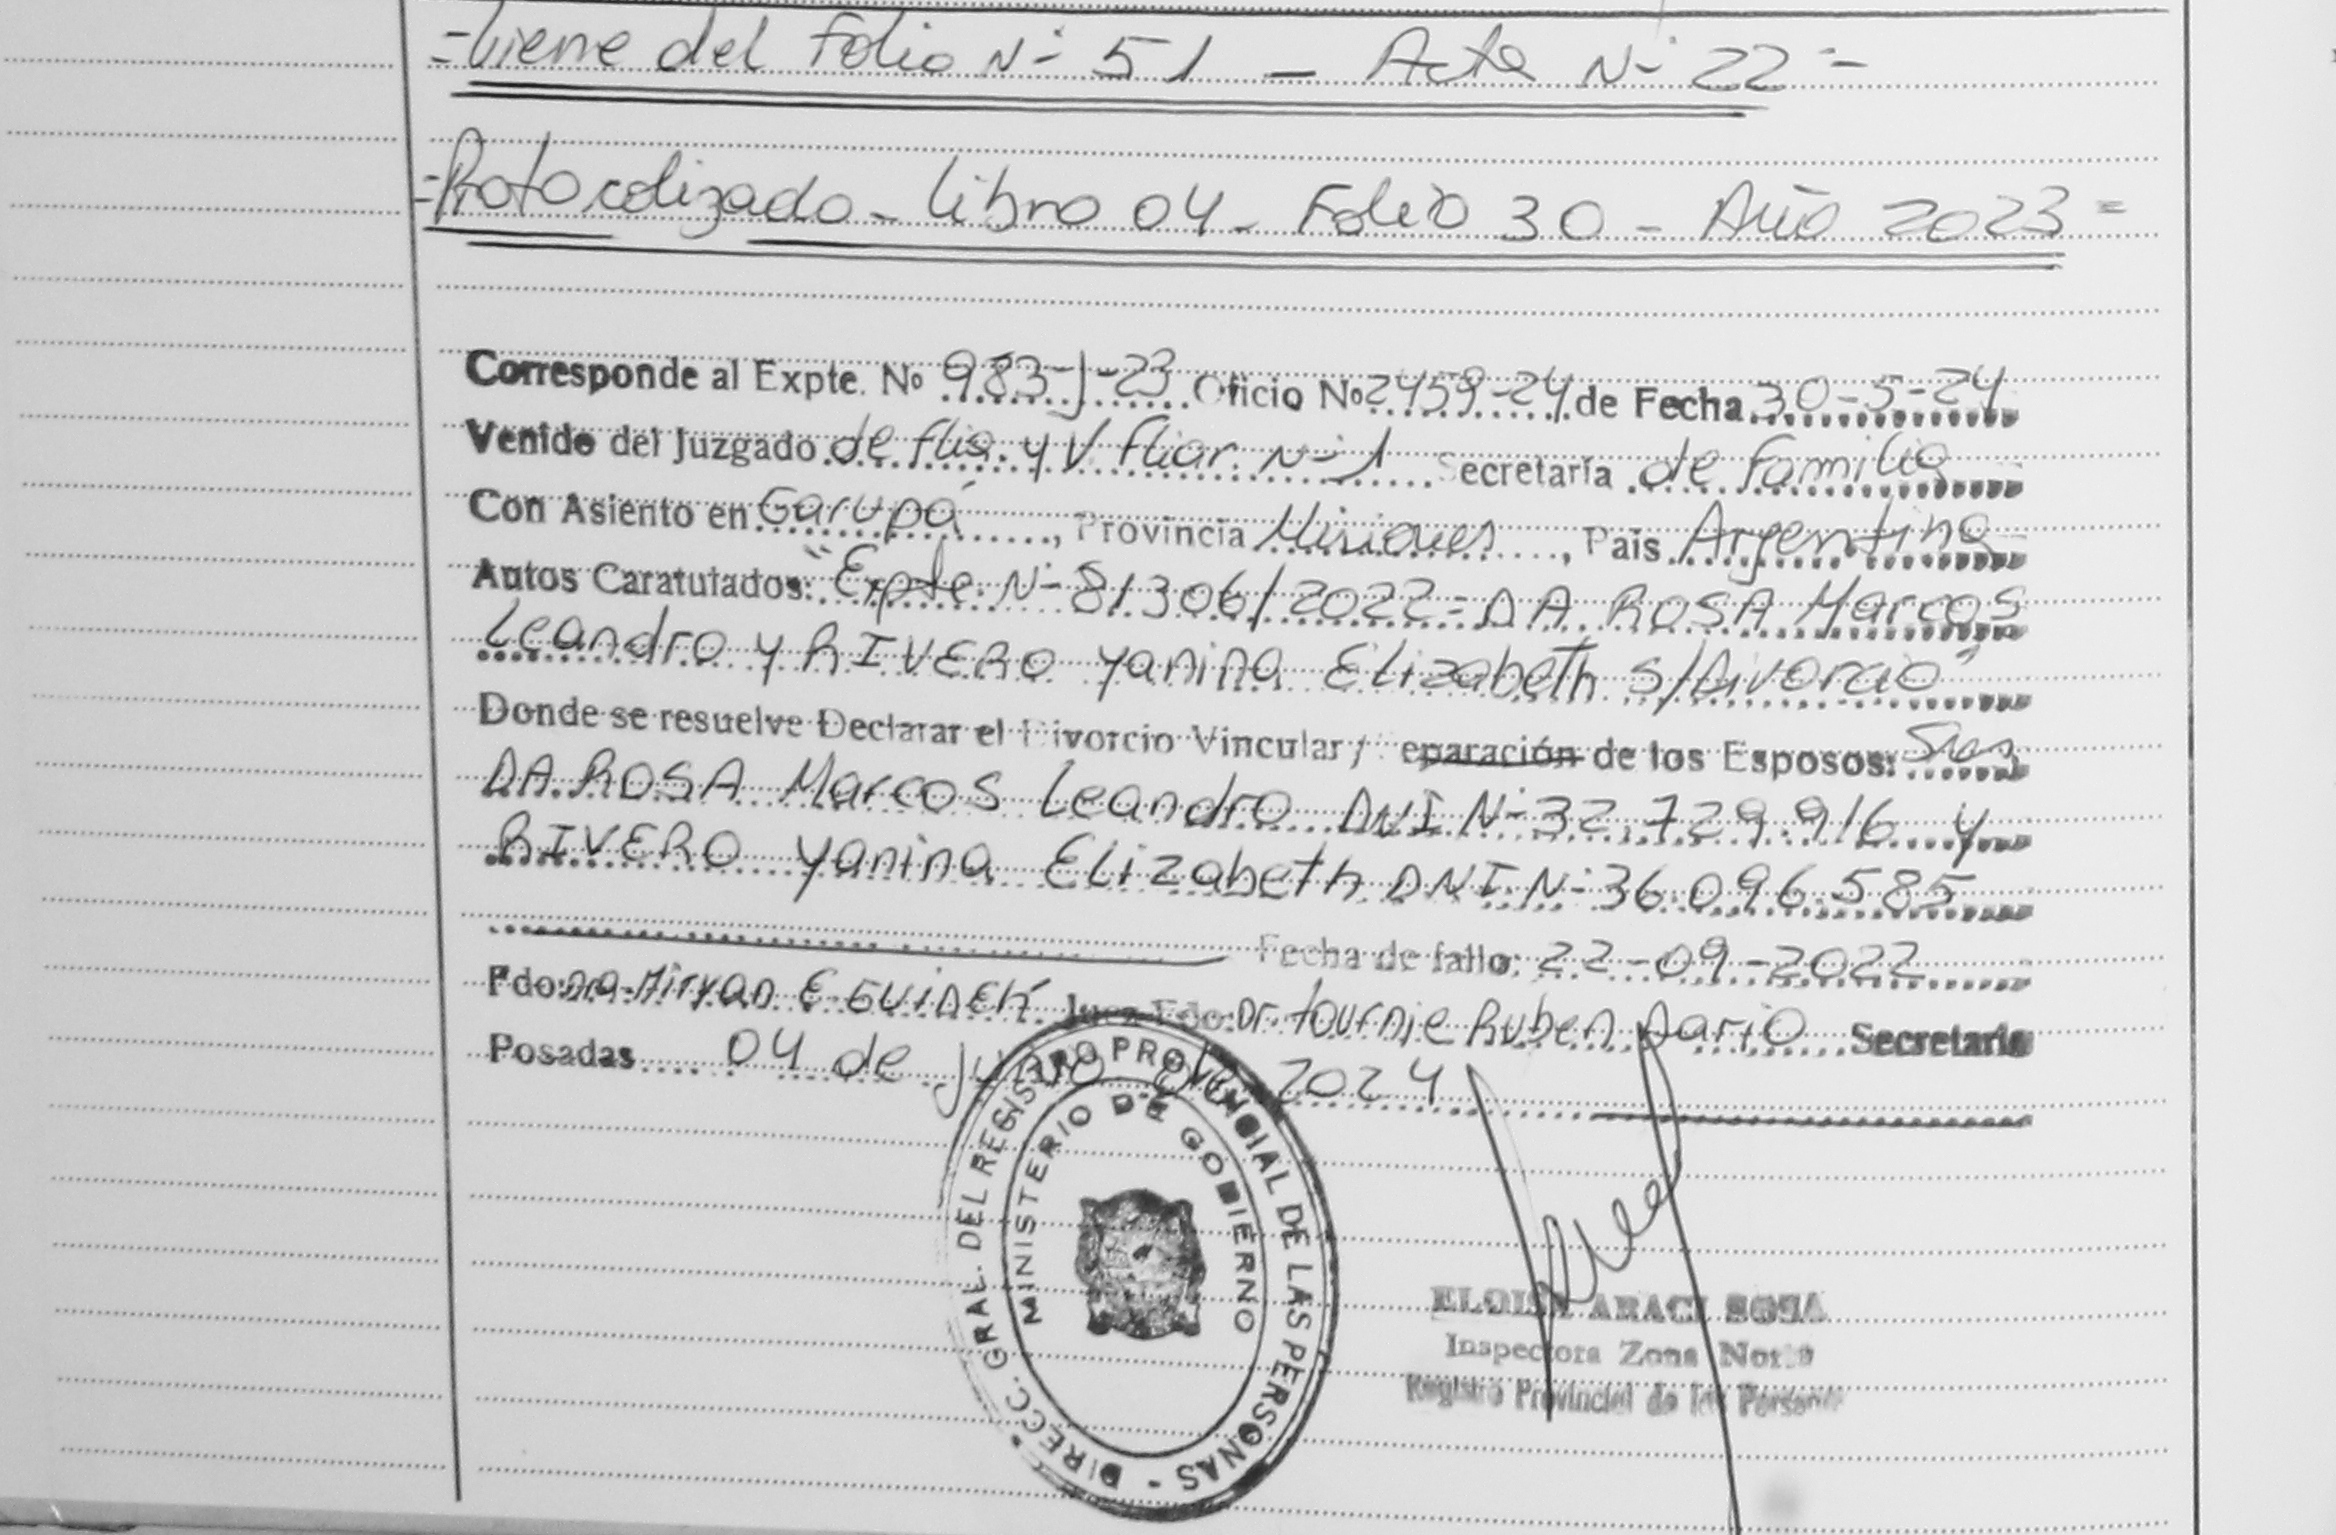 =Viene del Folio N- 51 - Acta N- 22=
=Protocolizado - Libro 04 - Folio 30 - Año 2023=
Corresponde al Expte. Nº 983-J-23 Oficio Nº 2459-24 de Fecha 30-5-24
Venido del Juzgado de flia. y V fliar. N-1 Secretaría de Familia
Con Asiento en Garupá, Provincia Misiones, País Argentina
Autos Caratulados: "Expte. N- 81306/2022=DA ROSA Marcos
Leandro y RIVERO Yanina Elizabeth S/Divorcio"
Donde se resuelve Declarar el Divorcio Vincular / eparación de los Esposos: Sres
DA ROSA Marcos Leandro DNI N- 32.729.916 y
RIVERO Yanina Elizabeth DNI N- 36.096.585
Fecha de fallo: 22-09-2022
Fdo: Dra. Miryan E. Juez Fdo: Dr. Tournie Ruben Dario Secretaria
Posadas 04 de Junio de 2024
DIRECC. GRAL. DEL REGISTRO PROVINCIAL DE LAS PERSONAS -
MINISTERIO DE GOBIERNO
ELOISA ARACI SOSA
Inspectora Zona Norte
Registro Provincial de las Personas